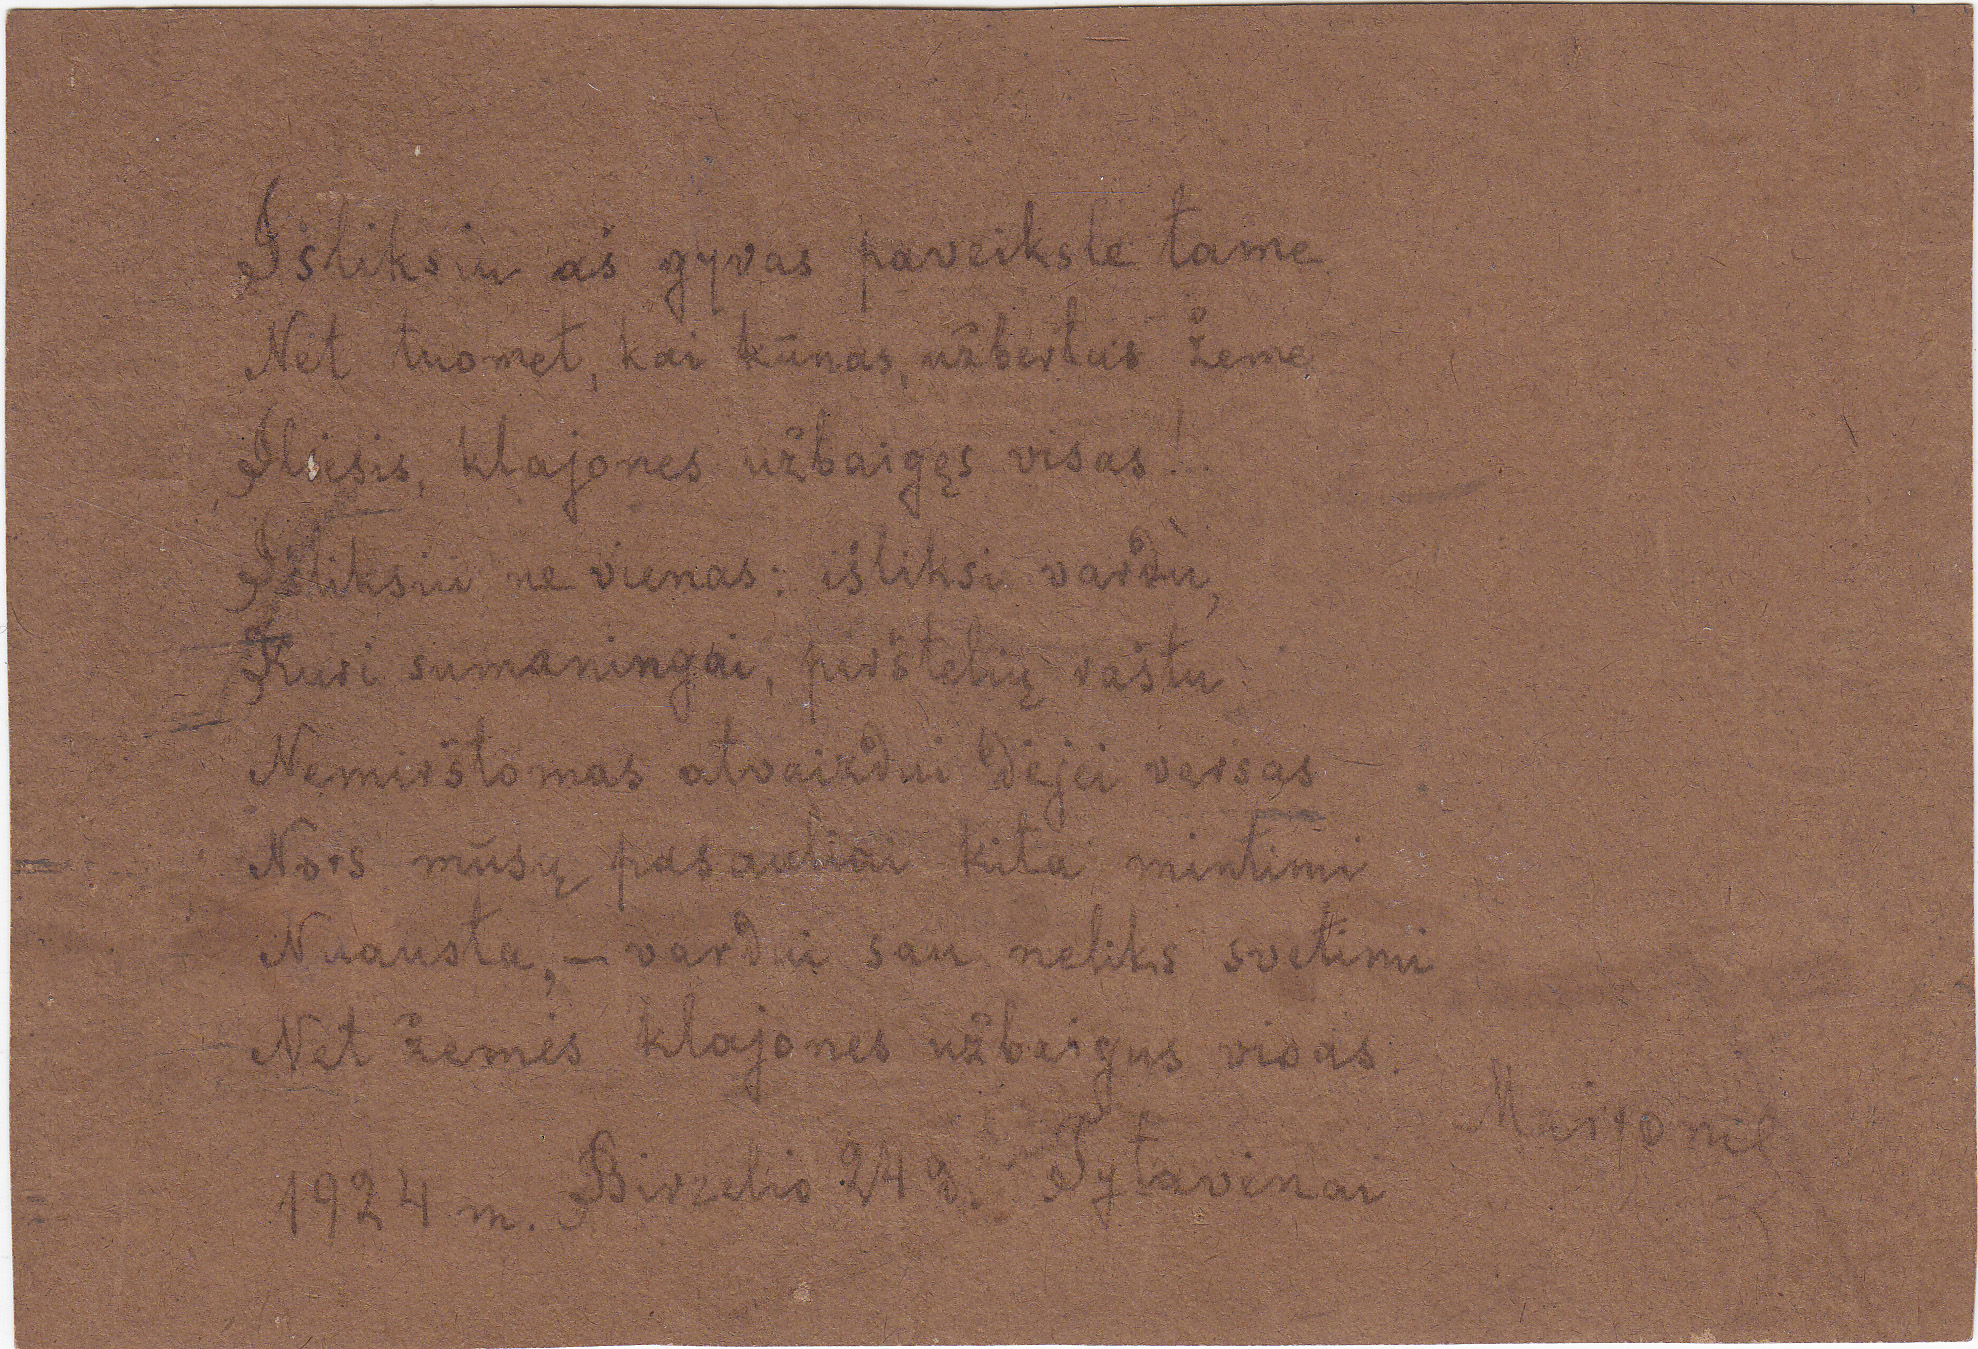 Išliksiu aš gyvas paveiksle tame
Net tuomet, kai kūnas, užbertas žeme
Ilsėsis, klajones užbaigęs visas!
Išliksiu ne vienas: išliksi vardu,
Kuri sumaningai, pirštelių raštu
Nemirštomas atvaizdui dėjei varsas
Nors mūsų pasauliai kita mintimi
Nuausta, – vardui sau neliks svetimi
Net žemės klajones užbaigus visas.
1924 m. Birželio 24 d. Tytavėnai